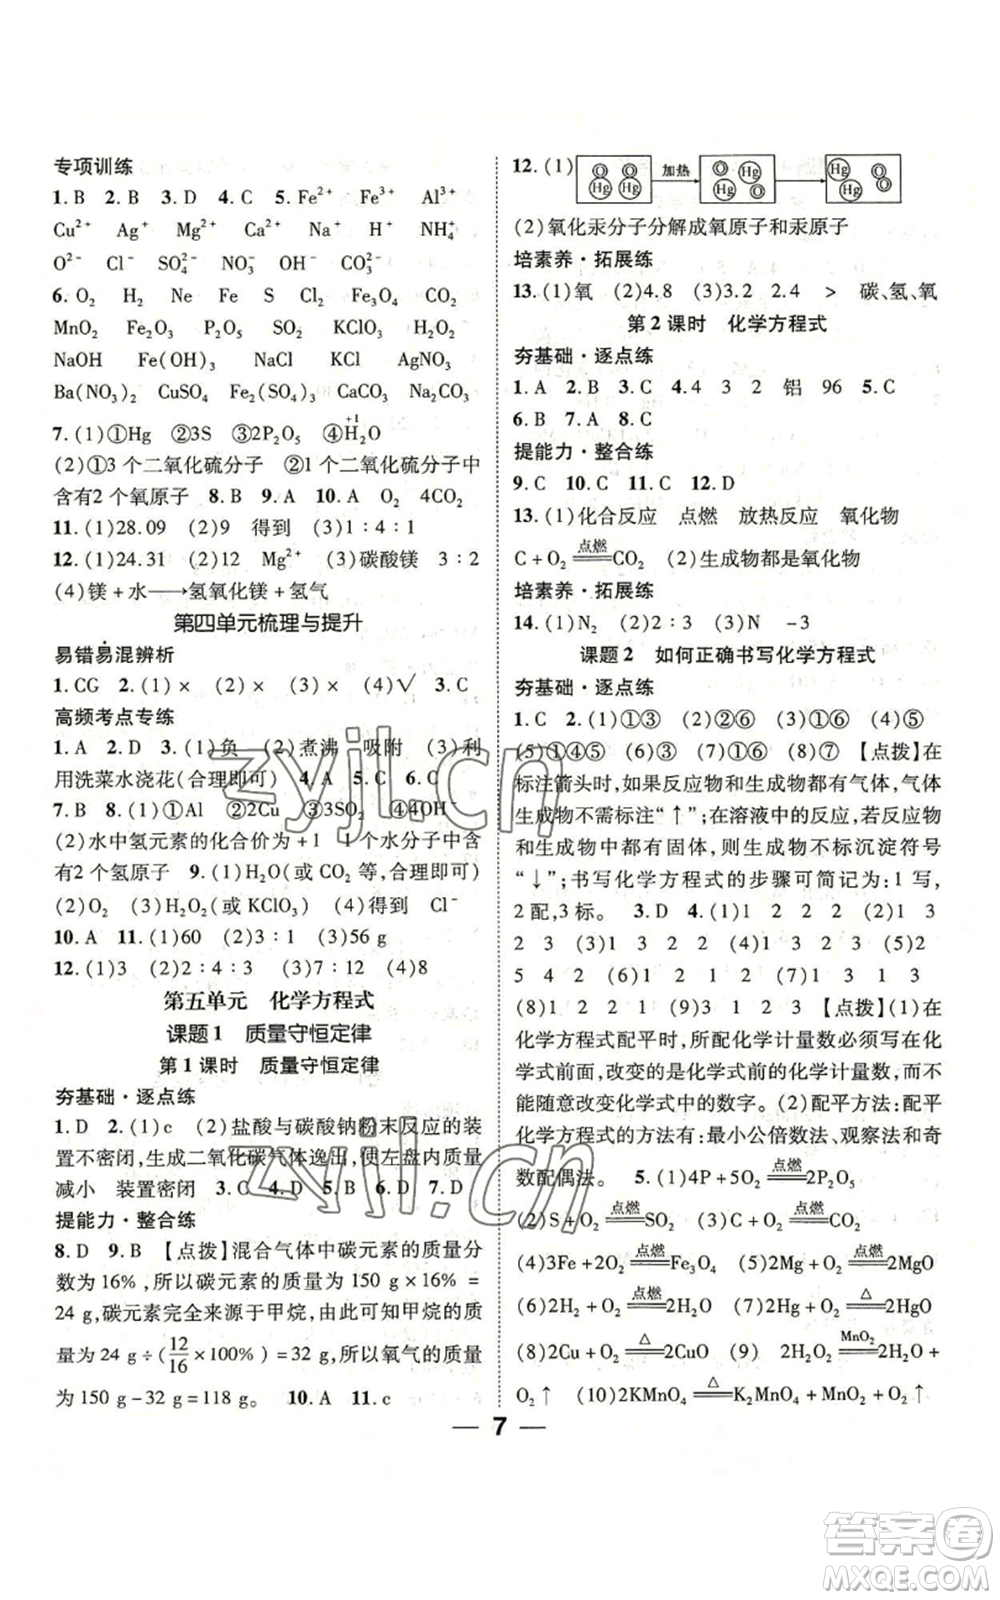 专项训练
1.B 2.B 3.D 4.C 5.Fe²⁺ Fe³⁺ Al³⁺
Cu²⁺ Ag⁺ Mg²⁺ Ca²⁺ Na⁺ H⁺ NH₄⁺
O²⁻ Cl⁻ SO₄²⁻ NO₃⁻ OH⁻ CO₃²⁻
6.O₂ H₂ Ne Fe S Cl₂ Fe₃O₄ CO₂
MnO₂ Fe₂O₃ P₂O₅ SO₂ KClO₃ H₂O₂
NaOH Fe(OH)₃ NaCl KCl AgNO₃
Ba(NO₃)₂ CuSO₄ Fe₂(SO₄)₃ CaCO₃ Na₂CO₃
+1
7.(1)①Hg ②3S ③2P₂O₅ ④H₂O
(2)①3 个二氧化硫分子 ②1 个二氧化硫分子中
含有2 个氧原子 8.B 9.A 10.A O₂ 4CO₂
11.(1)28.09 (2)9 得到 (3)1∶4∶1
12.(1)24.31 (2)12 Mg²⁺ (3)碳酸镁 3∶2
(4)镁+水⟶氢氧化镁+氢气
第四单元梳理与提升
易错易混辨析
1.CG 2.(1)× (2)× (3)× (4)√ 3.C
高频考点专练
1.A 2.D 3.(1)负 (2)煮沸 吸附 (3)利
用洗菜水浇花(合理即可) 4.A 5.C 6.C
7.B 8.(1)①Al ②2Cu ③3SO₂ ④4OH⁻
(2)水中氢元素的化合价为+1 1 个水分子中含
有2个氢原子 9.(1)H₂O(或 CO₂等,合理即可)
(2)O₂ (3)H₂O₂(或 KClO₃) (4)H⁺ Cl⁻
10.A 11.(1)60 (2)3∶1 (3)56 g
12.(1)3 (2)2∶4∶2 (3)CO₂ (4)8
第五单元 化学方程式
课题1 质量守恒定律
第1课时 质量守恒定律
夯基础·逐点练
1.D 2.(1)c (2)盐酸与碳酸钠粉末反应的装
置不密闭,生成二氧化碳气体逸出,使左盘内质量
减小 装置密闭 3.C 4.D 5.B 6.D 7.D
提能力·整合练
8.D 9.B 【点拨】混合气体中碳元素的质量分
数为16%,所以碳元素的质量为150 g×16%=
24 g,碳元素完全来源于甲烷,由此可知甲烷的质
量为24 g÷(12/16×100%)=32 g,所以氧气的质量
为150 g-32 g=118 g。 10.A 11.c
12.(1) O O Hg Hg 加热 O Hg Hg O Hg Hg O O
(2)氧化汞分子分解成氧原子和汞原子
培素养·拓展练
13.(1)氧 (2)4.8 (3)3.2 2.4 > 碳、氢、氧
第2课时 化学方程式
夯基础·逐点练
1.A 2.B 3.C 4.4 3 2 铝 96 5.C
6.B 7.A 8.C
提能力·整合练
9.C 10.C 11.C 12.D
13.(1)化合反应 点燃 放热反应 氧化物
C+O₂ 点燃══ CO₂ (2)生成物都是氧化物
培素养·拓展练
14.(1)N₂ (2)2∶3 (3)N -3
课题2 如何正确书写化学方程式
夯基础·逐点练
1.C 2.(1)①③ (2)②⑥ (3)②⑤ (4)⑤
(5)①④⑤ (6)⑤ (7)①⑥ (8)⑦ 【点拨】在
标注箭头时,如果反应物和生成物都有气体,气体
生成物不需标注“↑”;在溶液中的反应,若反应物
和生成物都有固体,则生成物不标沉淀符号
“↓”;书写化学方程式的步骤可简记为:1写,
2配,3标。 3.D 4.(1)1 2 2 2 (2)1 3
2 3 (3)1 3 2 2 (4)1 3 2 3 (5)2
5 4 2 (6)1 2 1 1 2 (7)4 3 2
(8)1 1 2 1 1 2 【点拨】(1)在
化学方程式配平时,所配化学计量数必须写在化
学式前面,改变的是化学式前的化学计量数,而不
能随意改变化学式中的数字。(2)配平方法:配平
化学方程式的方法有:最小公倍数法、观察法和奇
数配偶法。 5.(1)4P+5O₂ 点燃══ 2P₂O₅
(2)S+O₂ 点燃══ SO₂ (3)C+O₂ 点燃══ CO₂
(4)3Fe+2O₂ 点燃══ Fe₃O₄ (5)2Mg+O₂ 点燃══ 2MgO
(6)2H₂+O₂ 点燃══ 2H₂O (7)2Hg+O₂ △══ 2HgO
(8)2Cu+O₂ △══ 2CuO (9) 2H₂O₂ MnO₂══ 2H₂O+
O₂↑ (10)2KMnO₄ △══ K₂MnO₄+MnO₂+O₂↑
— 7 —
zyjl.cn
zyjl.cn
答案圈
MXQE.COM